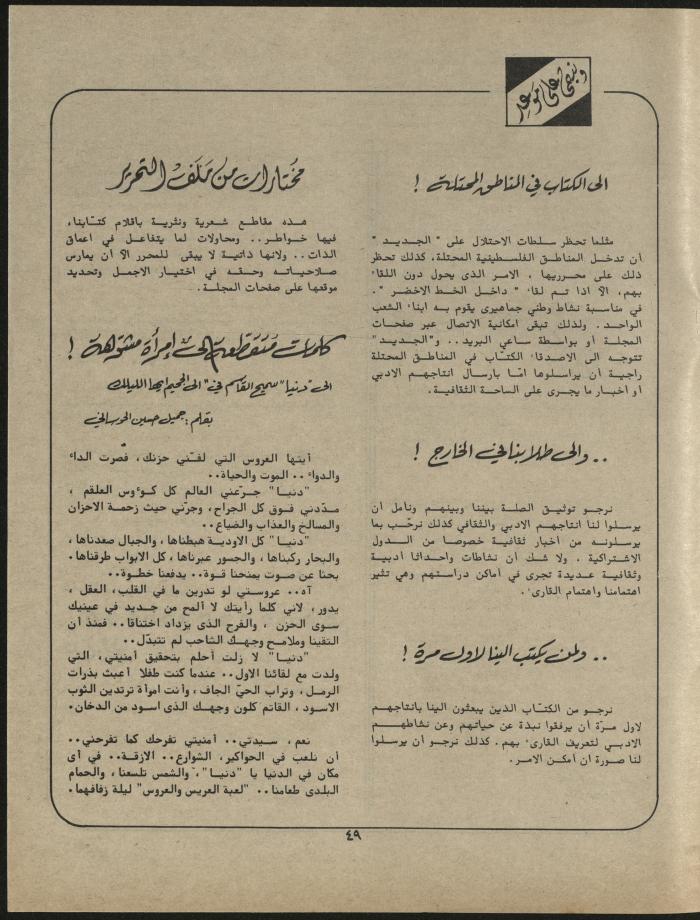 ونبقى على موعد
الى الكتاب في المناطق المحتلة !
مثلما تحظر سلطات الاحتلال على " الجديد "
أن تدخل المناطق الفلسطينية المحتلة، كذلك تحظر
ذلك على محرريها . الامر الذى يحول دون اللقاء
بهم، الاّ اذا تم لقاء " داخل الخط الاخضر " .
في مناسبة نشاط وطني جماهيرى يقوم به ابناء الشعب
الواحد . ولذلك تبقى امكانية الاتصال عبر صفحات
المجلة أو بواسطة ساعي البريد .. و"الجديد"
تتوجه الى الاصدقاء الكتّاب في المناطق المحتلة
راجية أن يراسلوها امّا بارسال انتاجهم الادبي
أو أخبار ما يجرى على الساحة الثقافية .
.. والى طلابنا في الخارج !
نرجو توثيق الصلة بيننا وبينهم ونامل أن
يرسلوا لنا انتاجهم الادبي والثقافي كذلك نرحّب بما
يرسلونه من أخبار ثقافية خصوصا من الدول
الاشتراكية . ولا شك أن نشاطات واحداثا أدبية
وثقافية عديدة تجرى في أماكن دراستهم وهي تثير
اهتمامنا واهتمام القارىء .
.. ولمن يكتب الينا لاول مرة !
نرجو من الكتّاب الذين يبعثون الينا بانتاجهم
لاول مرّة أن يرفقوا نبذة عن حياتهم وعن نشاطهم
الادبي لتعريف القارىء بهم . كذلك نرجو أن يرسلوا
لنا صورة ان أمكن الامر .
مختارات من ملف التحرير
هذه مقاطع شعرية ونثرية باقلام كتّابنا،
فيها خواطر .. ومحاولات لما يتفاعل في اعماق
الذات .. ولانها ذاتية لا يبقى للمحرر الاّ أن يمارس
صلاحياته وحقه في اختيار الاجمل وتحديد
موقعها على صفحات المجلة .
كلمات متقطعة الى إمرأة مشوهة !
الى "دنيا" سميح القاسم في "الى الجحيم ايها الليلك"
بقلم : جميل حسين
أيتها العروس التي لفّني حزنك، فصّرت الداء
والدواء .. الموت والحياة ..
"دنيا" جرّعني العالم كل كوءوس العلقم ،
مدّدني فوق كل الجراح، وجرّني حيث زحمة الاحزان
والمسالخ والعذاب والضياع ..
"دنيا" كل الاودية هبطناها، والجبال صعدناها،
والبحار ركبناها، والجسور عبرناها، كل الابواب طرقناها .
بحثا عن صوت يمنحنا قوة .. يدفعنا خطوة ..
آه .. عروستي لو تدرين ما في القلب، العقل ،
يدور، لاني كلما رأيتك لا ألمح من جديد في عينيك
سوى الحزن ، والفرح الذى يزداد اختناقا .. فمنذ أن
التقينا وملامح وجهك الشاحب لم تتبدّل ..
"دنيا" لا زلت أحلم بتحقيق أمنيتي، التي
ولدت مع لقائنا الاول .. عندما كنت طفلا أعبث بذرات
الرمل ، وتراب الحيّ الجاف، وأنت امرأة ترتدين الثوب
الاسود ، القاتم كلون وجهك الذى اسود من الدخان .
نعم ، سيدتي .. أمنيتي تفرحك كما تفرحني ..
أن نلعب في الحواكير، الشوارع .. الازقة .. في أى
مكان في الدنيا يا "دنيا"، والشمس تلسعنا، والحمام
البلدى طعامنا .. "لعبة العريس والعروس" ليلة زفافهما .
٤٩